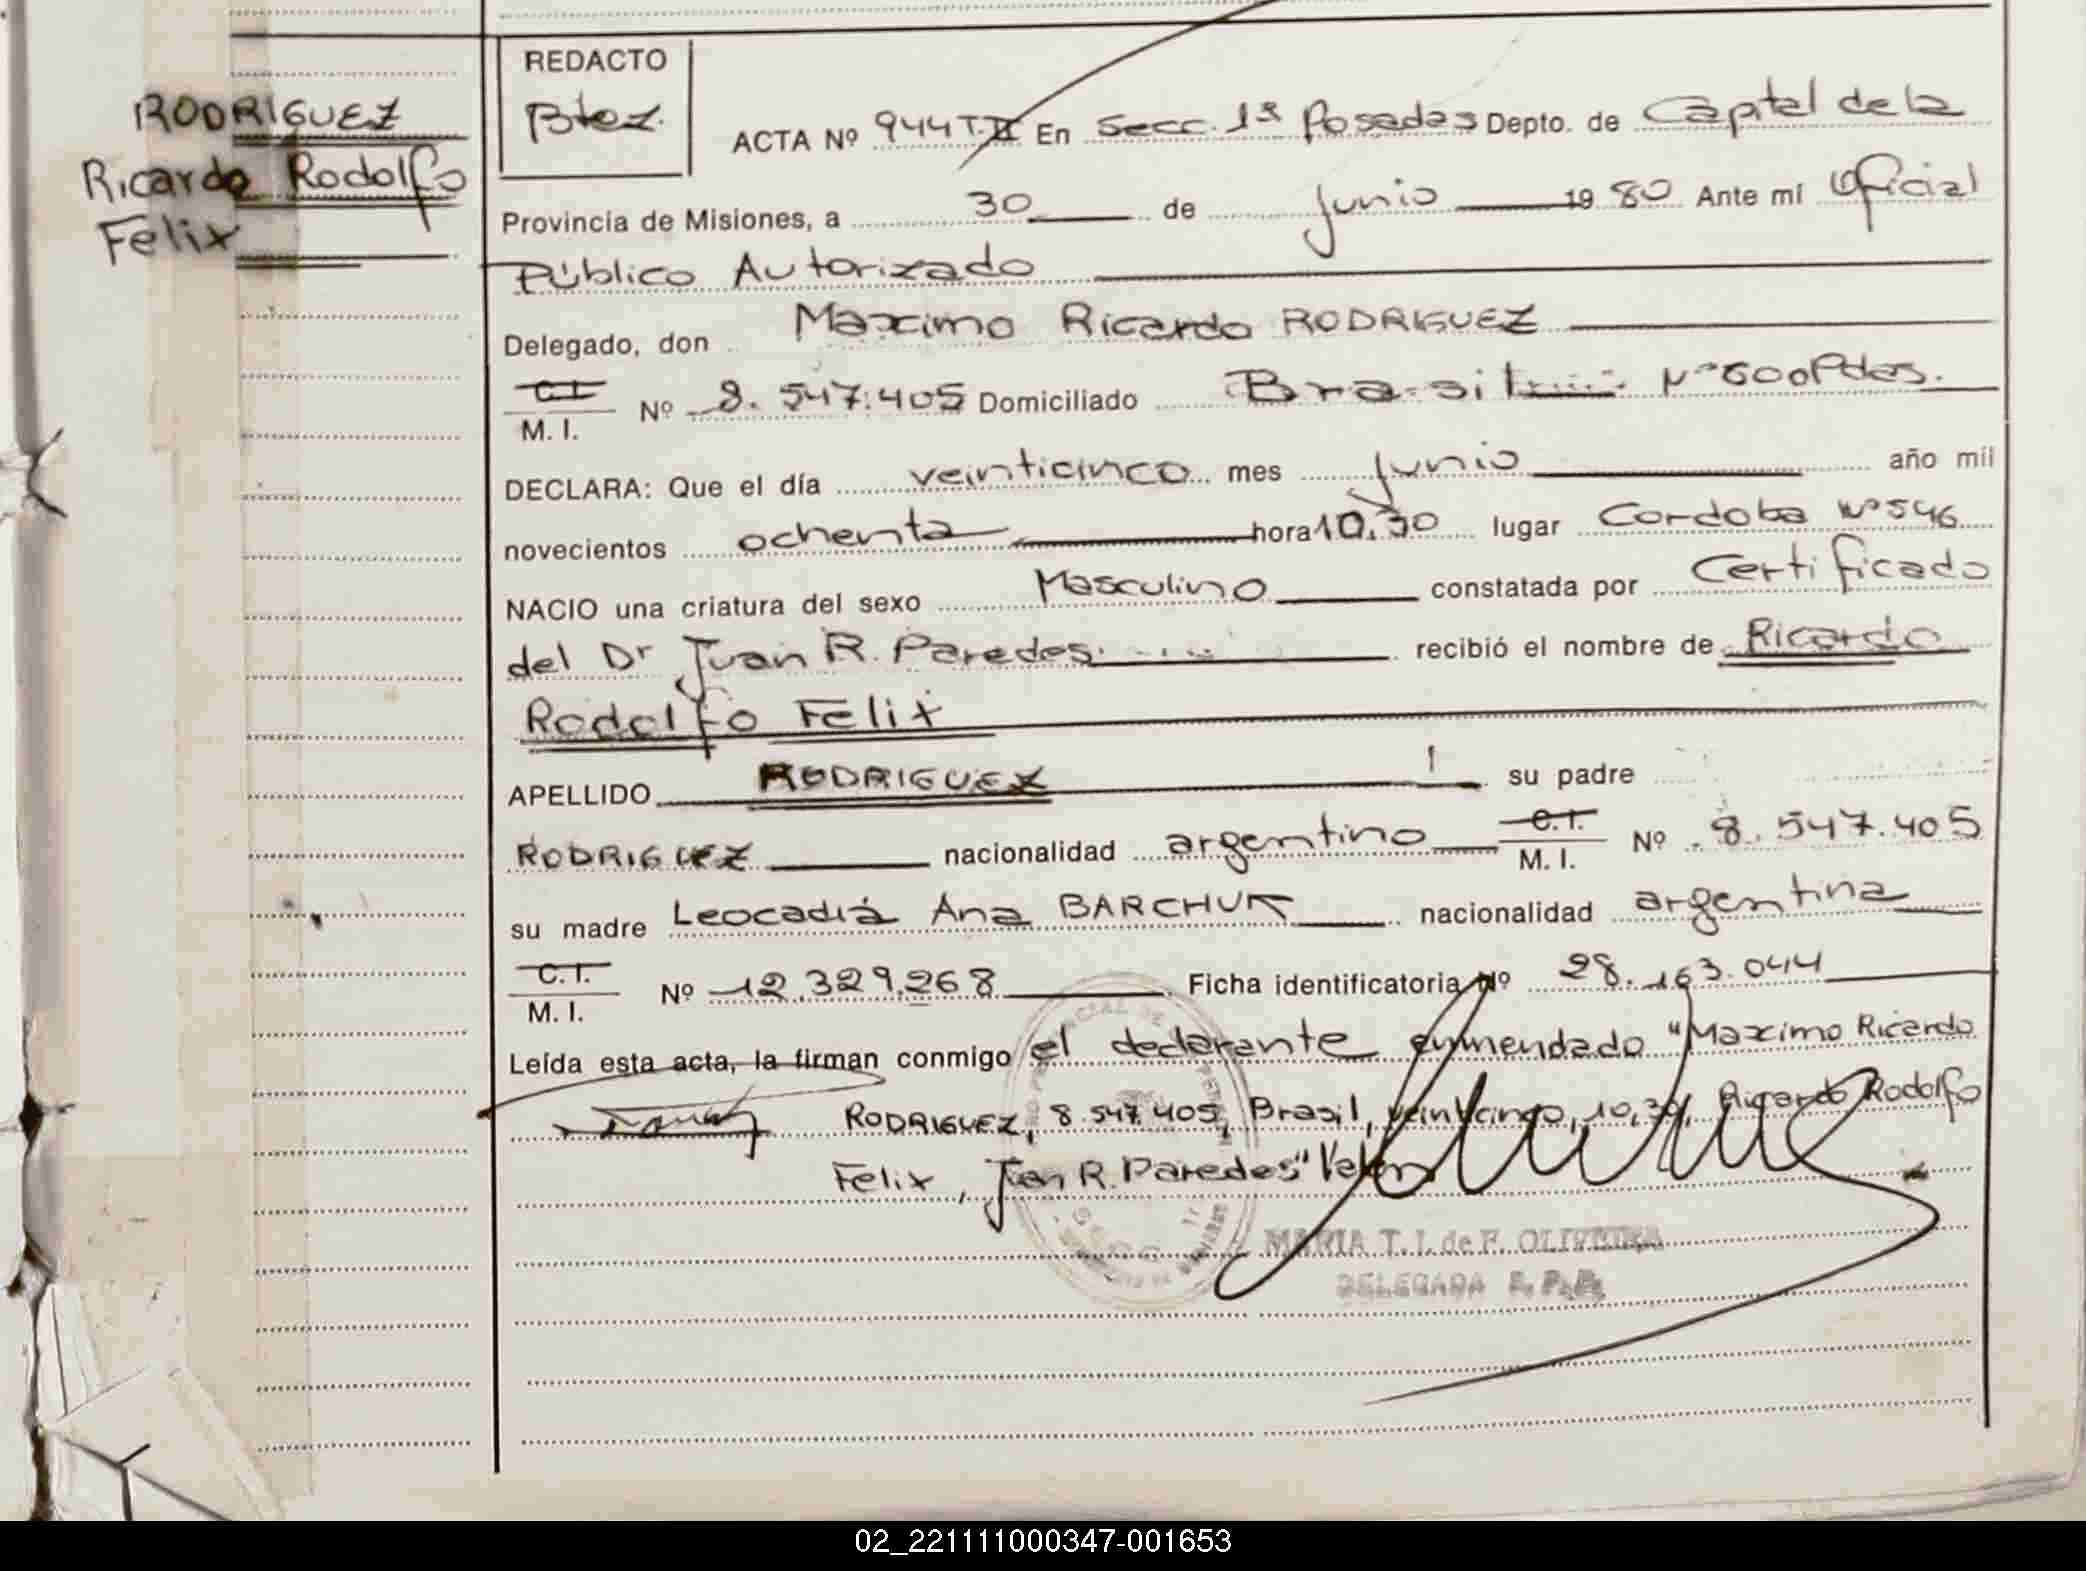 RODRIGUEZ
Ricardo Rodolfo
Felix
REDACTO
Btez.
ACTA Nº 944 T. II En Secc. 1ª Posadas Depto. de Capital de la
Provincia de Misiones, a 30 de Junio 1980 Ante mí Oficial
Público Autorizado
Delegado, don Maximo Ricardo RODRIGUEZ
C.I.
M. I. Nº 8.547.405 Domiciliado Brasil Nº 600 Pdas.
DECLARA: Que el día veinticinco mes Junio año mil
novecientos ochenta hora 10,30 lugar Cordoba Nº 546
NACIO una criatura del sexo Masculino constatada por Certificado
del Dr Juan R. Paredes recibió el nombre de Ricardo
Rodolfo Felix
APELLIDO RODRIGUEZ su padre
RODRIGUEZ nacionalidad argentino C.I.
M. I. Nº 8.547.405
su madre Leocadia Ana BARCHUK nacionalidad argentina
C.I.
M. I. Nº 12.329.268 Ficha identificatoria Nº 28.163.044
Leída esta acta, la firman conmigo el declarante enmendado "Maximo Ricardo
RODRIGUEZ, 8.547.405, Brasil, veinticinco, 10,30, Ricardo Rodolfo
Felix, Juan R. Paredes" Valen
MARIA T. I. de F. OLIVEIRA
DELEGADA R. P. P.
02_221111000347-001653